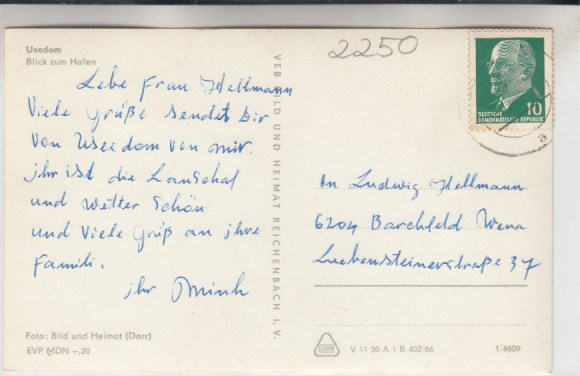 Usedom
Blick zum Hafen
Lebe Frau Hellmann
Viele Grüße sendet Dir
von Usedom von mir.
jhr ist die Lanschaf
und Wetter Schön
und Viele Grüß an jhre
Famili.
jhr
Foto: Bild und Heimat (Darr)
EVP MDN –,20
VEB BILD UND HEIMAT REICHENBACH I. V.
2250
10
DEUTSCHE
DEMOKRATISCHE REPUBLIK
a
An Ludwig Hellmann
6204 Barchfeld Werra
Liebensteinerstraße 37
V 11 50 A 1 B 402/66
1/4609